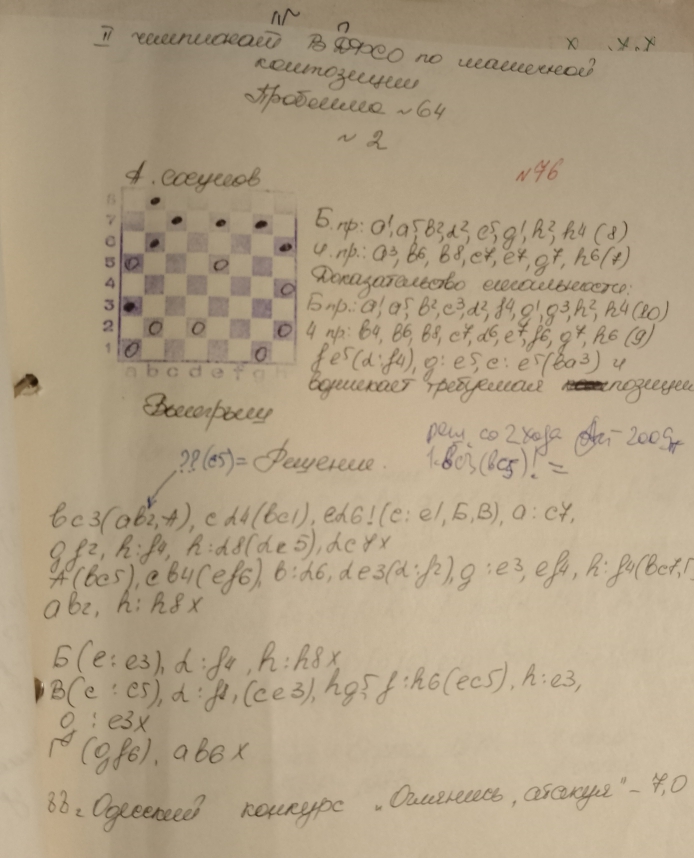 II чемпионат ВДФСО по шашечной
композиции
Проблема ~64
~ 2
А. Сосунов
№76
8
7
6
5
4
3
2
1
a b c d e f g h
Б. пр: a1, a5, b2, d2, e5, g1, h2, h4 (8)
ч. пр.: a3, b6, b8, c7, e7, g7, h6 (7)
Доказательство легальности:
Б пр: a1, a5, b2, c3, d2, f4, g1, g3, h2, h4 (10)
Ч пр: b4, b6, b8, c7, d6, e7, f6, g7, h6 (9)
fe5 (d:f4), g:e5, c:e5 (ba3) и
возникает требуемая позиция
Выигрыш
реш. со 2 хода
1. bc3 (bc5)! =
?? (c5) = Решение.
bc3 (ab2, A), cd4 (bc1), ed6! (c:e1, Б, В), a:c7,
gf2, h:f4, h:d8 (de5), dc7x
А (bc5), cb4 (ef6), b:d6, de3 (d:f2), g:e3, ef4, h:f4 (bc7, Г
ab2, h:h8x
Б (e:e3), d:f4, h:h8x
В (c:c5), d:f4, (ce3), hg5, f:h6 (ec5), h:e3,
: e3x
Г (gf6), ab6x
88г. Одесский конкурс „Оглянись, атакуя" – 7,0